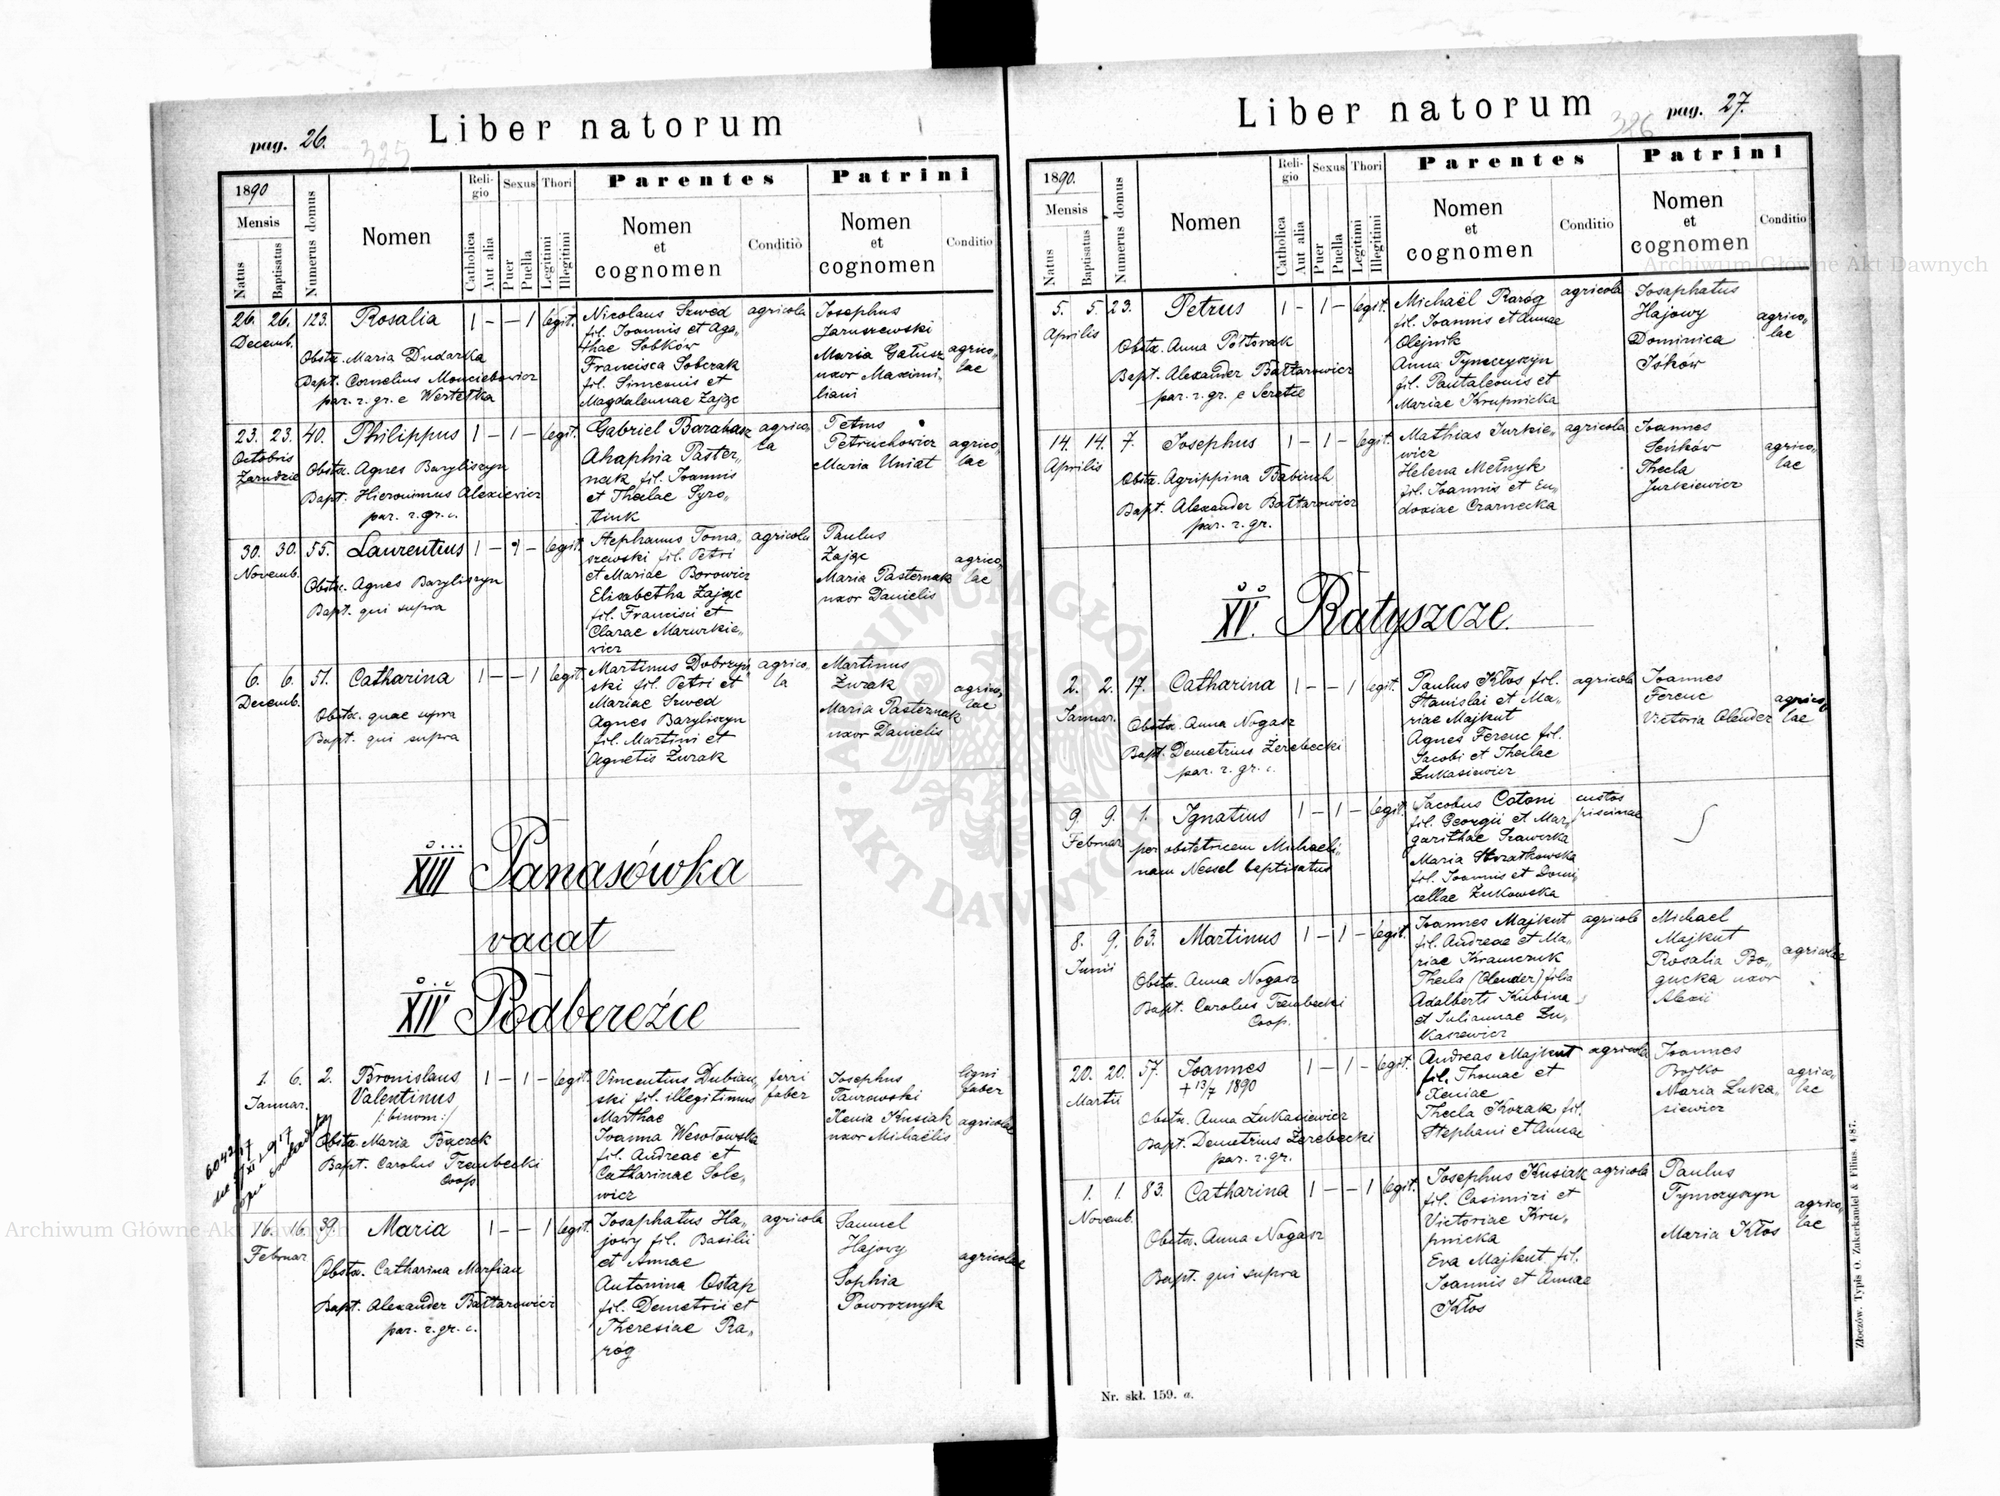 pag. 26.
325
Liber natorum
1890
Mensis
Natus
Baptisatus
Numerus domus
Nomen
Religio
Catholica
Aut alia
Sexus
Puer
Puella
Thori
Legitimi
Illegitimi
Parentes
Nomen
et
cognomen
Conditio
Patrini
Nomen
et
cognomen
Conditio
26. 26. 123. Rosalia 1 – – 1 legit.
Decemb.
Obstx. Maria Dudarka
Bapt. Cornelius Monciebowicz
par. r. gr. e Wertełka
Nicolaus Szwed
fil. Joannis et Aga„
thae Sobków
Francisca Sobczak
fil. Simeonis et
Magdalennae Zając
agricola
Josephus
Jaruszewski
Maria Gałusz
uxor Maximi„
liani
agrico„
lae
23. 23. 40. Philippus 1 – 1 – legit.
Octobris
Zarudzie
Obstx. Agnes Baryliszyn
Bapt. Hieronimus Alexiewicz
par. r. gr. c.
Gabriel Barabasz
Ahaphia Paster„
nak fil. Joannis
et Theclae Syro„
tiuk
agrico„
la
Petrus
Petruchowicz
Maria Uniat
agrico„
lae
30. 30. 55. Laurentius 1 – 1 – legit.
Novemb.
Obstx. Agnes Baryliszyn
Bapt. qui supra
Stephanus Toma„
szewski fil. Petri
et Mariae Borowicz
Elisabetha Zając
fil. Francisci et
Clarae Mazurkie„
wicz
agricola
Paulus
Zając
Maria Pasternak
uxor Danielis
agrico„
lae
6. 6. 51. Catharina 1 – – 1 legit.
Decemb.
Obstx. quae supra
Bapt. qui supra
Martinus Dobrzyń„
ski fil. Petri et
Mariae Szwed
Agnes Baryliszyn
fil. Martini et
Agnetis Żurak
agrico„
la
Martinus
Żurak
Maria Pasternak
uxor Danielis
agrico„
lae
XIII Panasówka
vacat
XIV Podbereźce
1. 6. 2. Bronislaus 1 – 1 – legit.
Januar.
Valentinus
/: binom :/
Obstx. Maria Bączek
Bapt. Carolus Trembecki
Coop.
Vincentius Dubiań„
ski fil. illegitimus
Marthae
Joanna Wesołowska
fil. Andreae et
Catharinae Sole„
wicz
ferri
faber
Josephus
Taurowski
Xenia Kusiak
uxor Michaëlis
ligni
faber
agricolae
16. 16. 39. Maria 1 – – 1 legit.
Februar.
Obstx. Catharina Marfian
Bapt. Alexander Bałtarowicz
par. r. gr. c.
Josaphatus Ha„
jowy fil. Basilii
et Annae
Antonina Ostap
fil. Demetrii et
Theresiae Ra„
róg
agricola
Samuel
Hajowy
Sophia
Poworoznyk
agricolae
Liber natorum
326
pag. 27.
1890.
Mensis
Natus
Baptisatus
Numerus domus
Nomen
Religio
Catholica
Aut alia
Sexus
Puer
Puella
Thori
Legitimi
Illegitimi
Parentes
Nomen
et
cognomen
Conditio
Patrini
Nomen
et
cognomen
Conditio
5. 5. 23. Petrus 1 – 1 – legit.
Aprilis
Obstx. Anna Półtorak
Bapt. Alexander Bałtarowicz
par. r. gr. e Seretec
Michaël Raróg
fil. Joannis et Annae
Olejnik
Anna Tymczyszyn
fil. Pantaleonis et
Mariae Krupnicka
agricola
Josaphatus
Hajowy
Dominica
Iśków
agrico„
lae
14. 14. 7. Josephus 1 – 1 – legit.
Aprilis
Obstx. Agrippina Babiuch
Bapt. Alexander Bałtarowicz
par. r. gr.
Mathias Jurkie„
wicz
Helena Melnyk
fil. Joannis et Eu„
doxiae Czarnecka
agricola
Joannes
Seńków
Thecla
Jurkiewicz
agrico„
lae
XV. Ratyszcze.
2. 2. 17. Catharina 1 – – 1 legit.
Januar.
Obstx. Anna Nogasz
Bapt. Demetrius Żerebecki
par. r. gr. c.
Paulus Kłos fil.
Stanislai et Ma„
riae Majkut
Agnes Ferenc fil.
Jacobi et Theclae
Łukasiewicz
agricola
Joannes
Ferenc
Victoria Olender
agrico„
lae
9. 9. 1. Ignatius 1 – 1 – legit.
Februar.
per obstetricem Michaeli„
nam Nessel baptisatus
Jacobus Cotoni
fil. Georgii et Mar„
garithae Szawerka
Maria Stratkowska
fil. Joannis et Domi„
cellae Żukowska
custos
piscinae
8. 9. 63. Martinus 1 – 1 – legit.
Junii
Obstx. Anna Nogasz
Bapt. Carolus Trembecki
Coop.
Joannes Majkut
fil. Andreae et Ma„
riae Kramczuk
Thecla (Olender) filia
Adalberti Kubina
et Juliannae Łu„
kasiewicz
agricola
Michael
Majkut
Rosalia Bo„
gucka uxor
Alexii
agricolae
20. 20. 57. Joannes 1 – 1 – legit.
Martii
+ 13/7 1890
Obstx. Anna Łukasiewicz
Bapt. Demetrius Żerebecki
par. r. gr.
Andreas Majkut
fil. Thomae et
Xeniae
Thecla Kozak fil.
Stephani et Annae
agricola
Joannes
Bojko
Maria Łuka„
siewicz
agrico„
lae
1. 1. 83. Catharina 1 – – 1 legit.
Novemb.
Obstx. Anna Nogasz
Bapt. qui supra
Josephus Kusiak
fil. Casimiri et
Victoriae Kru„
pnicka
Eva Majkut fil.
Joannis et Annae
Kłos
agricola
Paulus
Tymczyszyn
Maria Kłos
agrico„
lae
Nr. skł. 159. a.
Złoczów. Typis O. Zukerkandel & Filius. 4/87.
Archiwum Główne Akt Dawnych
Archiwum Główne Akt Dawnych
ARCHIWUM GŁÓWNE
AKT DAWNYCH